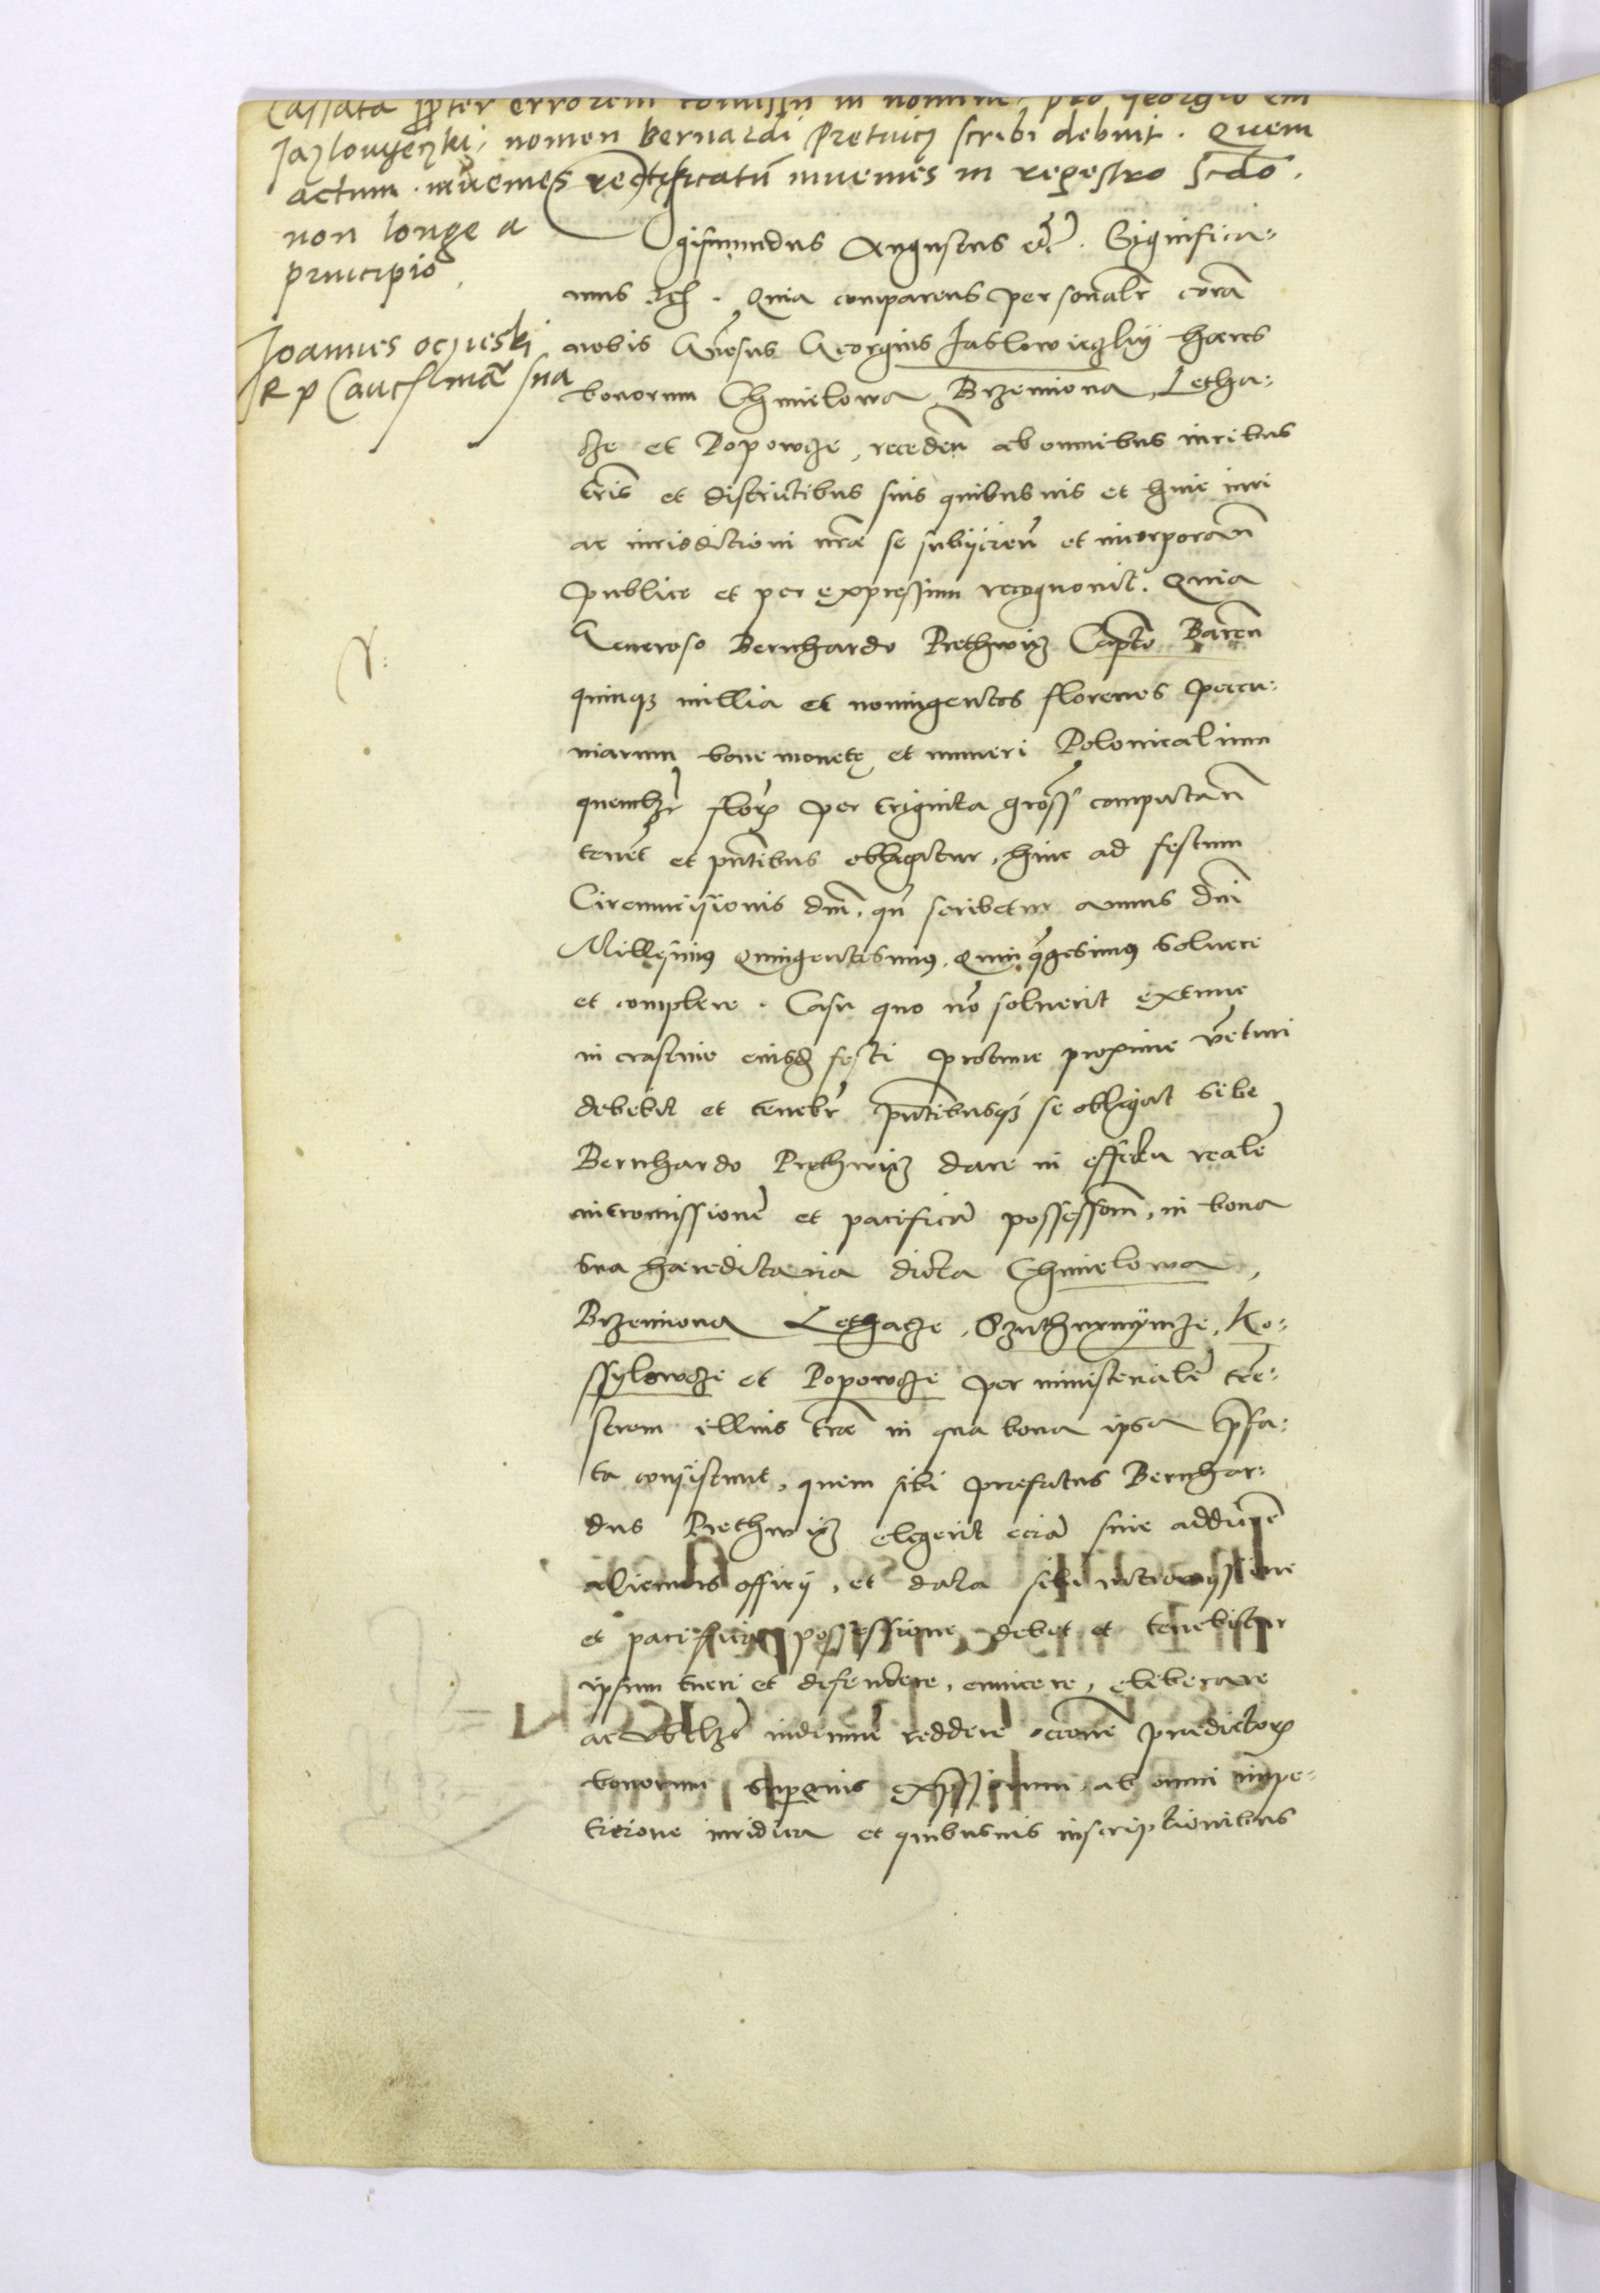 Cassata propter errorem comissu in nomine, pro Georgio em
Jazlowyeczki, nomen Bernardi Pretuicz scribi debuit. Quem
actum inuemes rectificatū inuemes in regestro scdo.
non longe a
principio,
Joannes oczieski
R p Canc manu sua
gismundus Augustus etc. Significa=
mus etc. Quia comparens personalr corā
nobis Gnrosus Georgius Jaslowieczkij haeres
bonorum Chmielowa Brzemiona, Letha=
cze et Popowcze, recedēn ab omnibus iuribus
trris et districtibus suis quibusuis et huic iuri
ac iurisdictioni nrae se subijcien et incorporan
publice et per expressum recognouit. Quia
Generoso Bernhardo Prethwicz Capto Baren
quinq millia et noningentos florenos pecu=
niarum bone monetę et numeri Polonicalium
quemlzt flor per triginta gross computan
tenet et pntibus obligatur, hinc ad festum
Circumcisionis dni, qn scribetur annus dni
Millesimus Quingentesimus, Quinqgesimus soluere
et complere. Casu quo no soluerit extunc
in crastino eiusd festi protunc proxime venturi
debebit et tenebr pntibusq se obligat sibi
Bernhardo Prethwicz dare in effectu realē
intromissionē et pacificā possessionē, in bona
sua haereditaria dicta Chmielowa,
Brzemiona Lethacze, Szuthnrmijncze, Ko=
ssylowcze et Popowcze per ministerialē trre=
strem illius trrae in qua bona ipsa praefa=
ta consistunt, quem sibi praefatus Bernhar=
dus Prethwicz elegerit eciā sine additione
alicuius officij, et data sibi intromissione
et pacifica possessione debet et tenebitur
ipsum tueri et defendere, euincere, eliberare
ac vbilzt indemnē reddere raone praedictor
bonorum superius expssorum, ab omni impe=
titione iuridica et quibusuis inscriptionibus